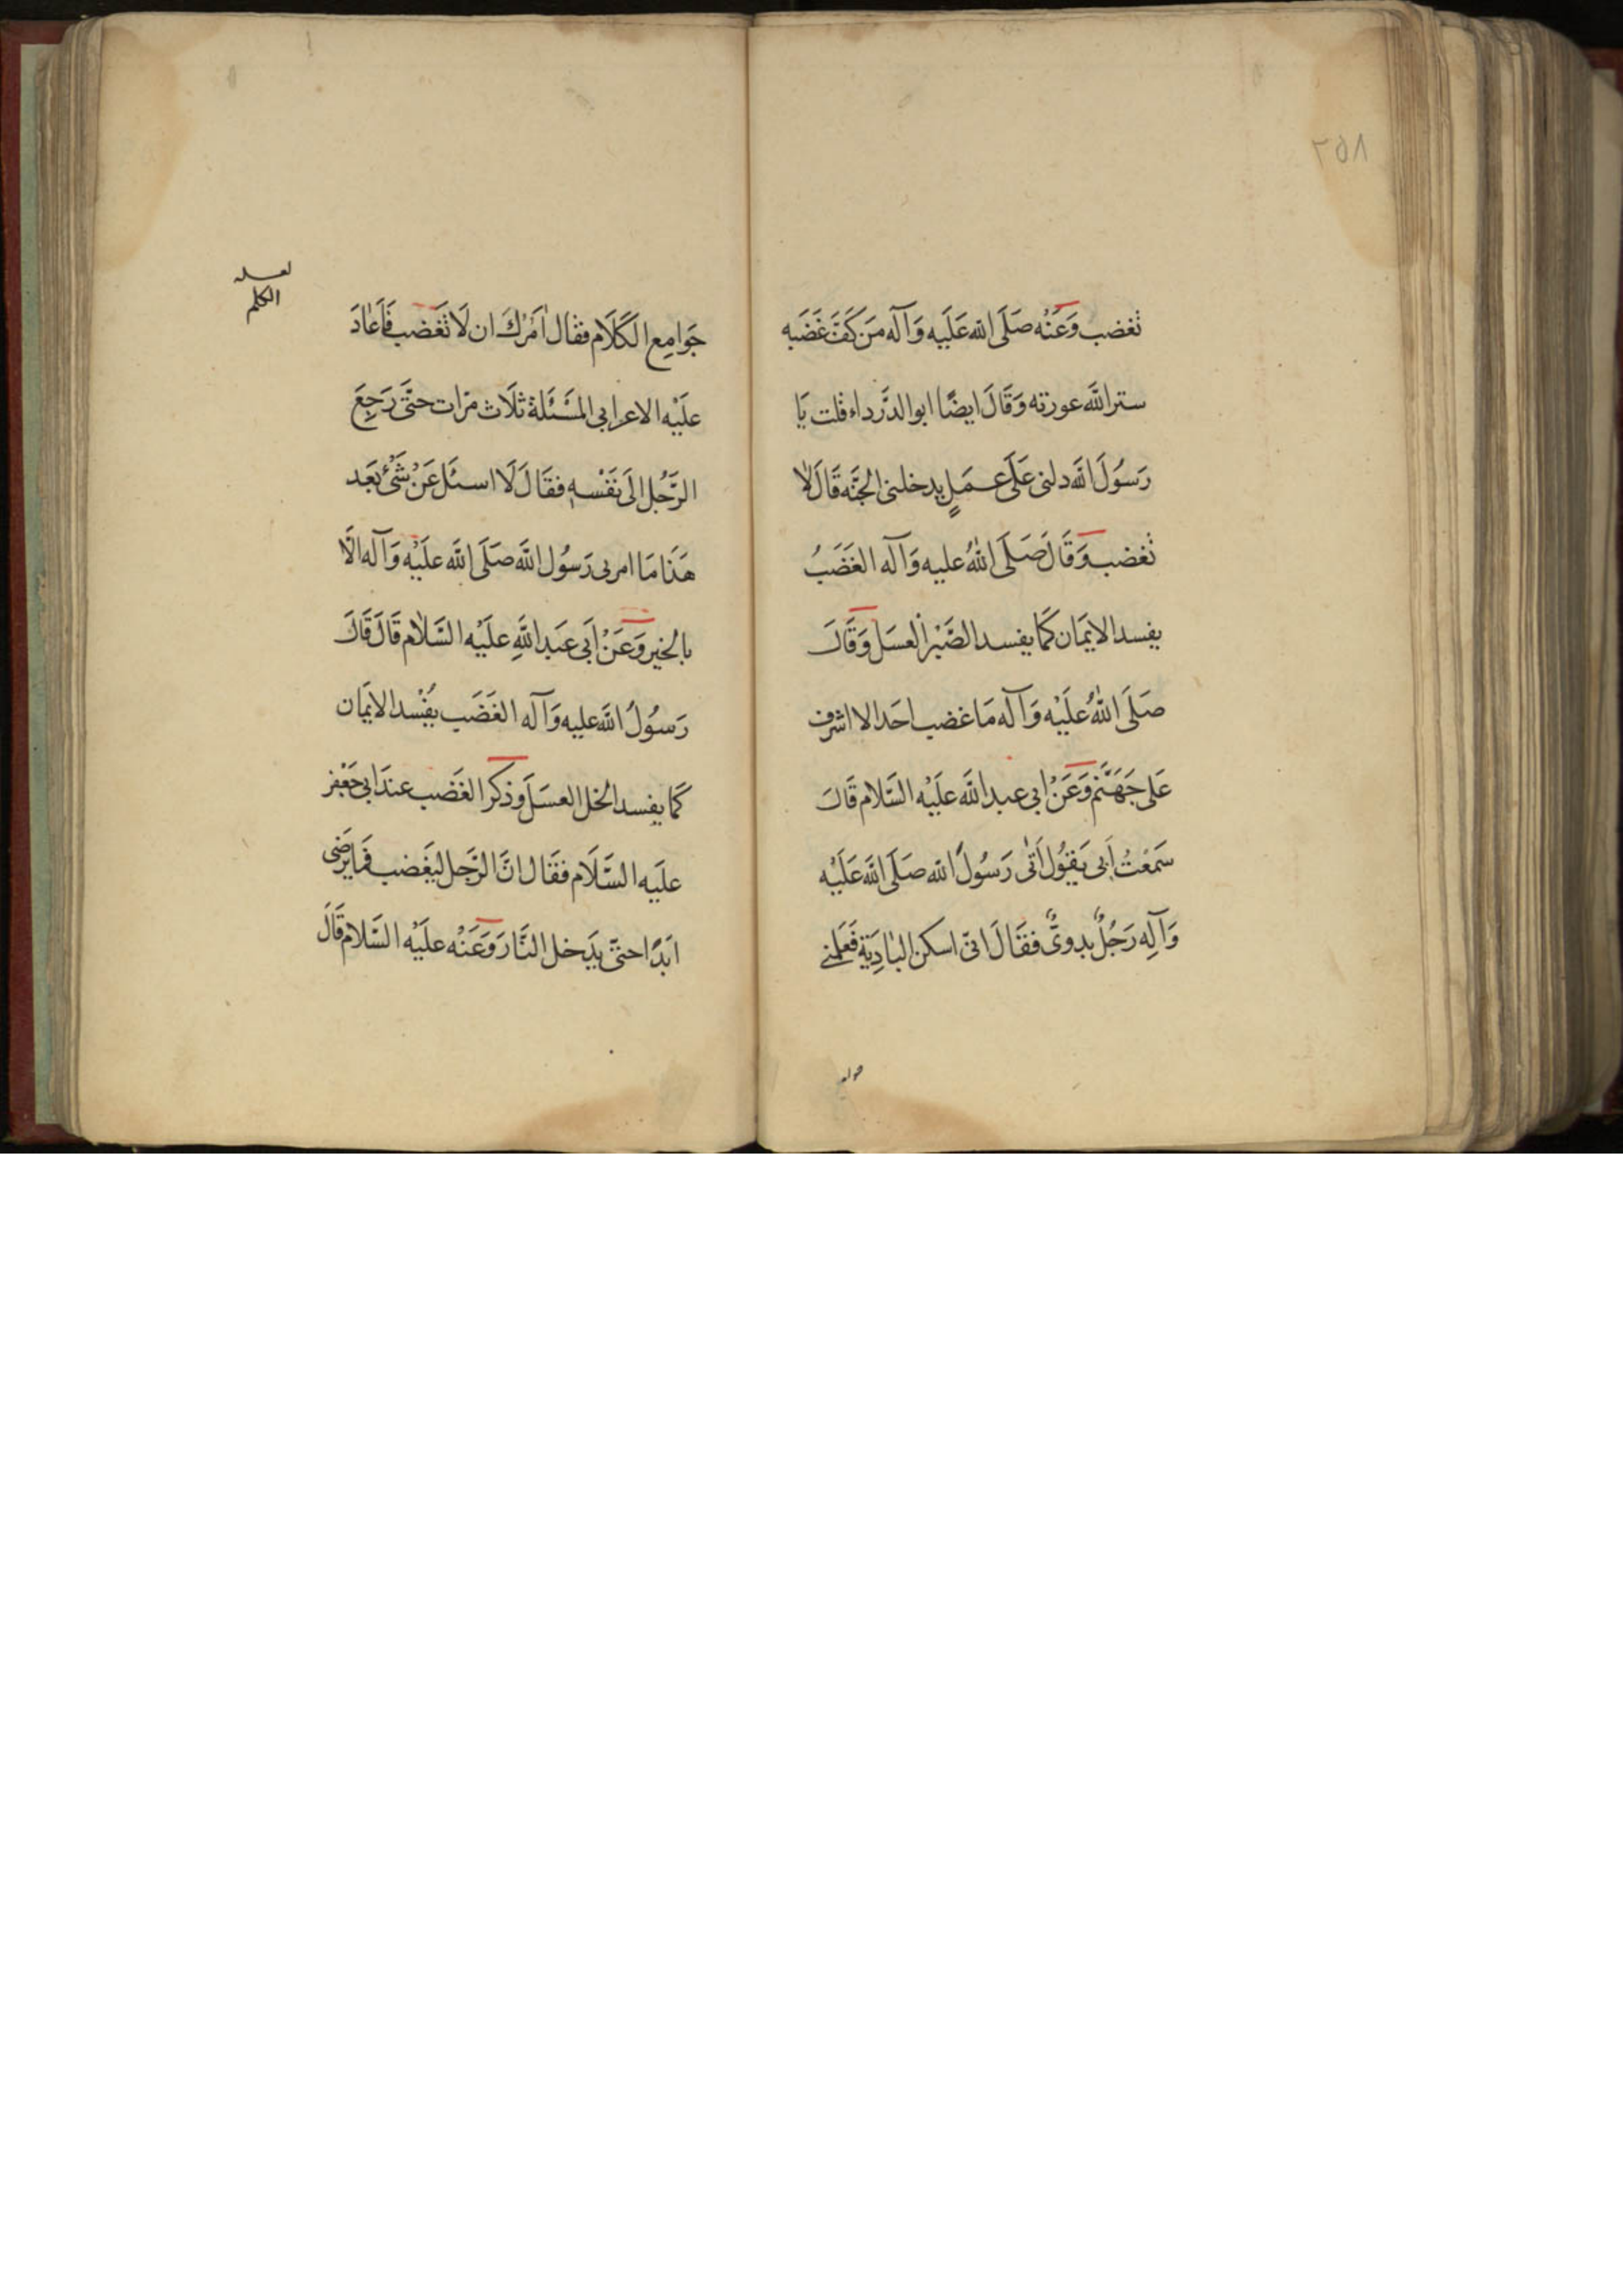 ٢٥٨
تغضب وَعَنْه صَلَى الله عَلَيه وَآله مَن كَفَّ غَضَبه
ستر الله عورته وَقَالَ ايضًا ابو الدَّرداء قلت يَا
رَسُولَ الله دلنى عَلَى عَمَلٍ يدخلنى الجنَّه قَالَ لا
تغضب وَقَالَ صَلَى اللهُ عليه وَآله الغَضَبُ
يفسد الايمَان كَمَا يفسد الصَّبْر العسَل وَقَالَ
صَلَى اللهُ عَلَيْه وَآله مَا غضب احَد الا اشرف
عَلى جَهَنَّم وَعَنْ ابى عبد الله علَيْه السَّلام قَالَ
سَمعْتُ اَبى يَقوُل اَتى رَسُولَ الله صَلَى الله عَلَيْه
وَآلِه رَجُلٌ بدوىٌّ فقَالَ انّى اسكن البَادِيَة فَعَلمنے
جوامع
لعله
الكلم
جَوَامِع الكَلَام فقال اَمُرك ان لَا تَغضب فَاَعَادَ
علَيْه الاعرابى المَسْئَلة ثلَاث مرّات حتَّى رَجِعَ
الرَّجُل الَى نَفْسه فقَالَ لَا اسئَل عَنْ شَئ بَعَد
هَذَا مَا امرنى رَسُول الله صَلَى الله علَيْه وَآله الَّا
بالخير وَعَنْ اَبى عَبد اللهِ علَيْه السَّلام قَالَ قَالَ
رَسُولُ الله عليه وَآله الغَضَب يفْسد الايمَان
كَما يفسد الخل العسَل وَذكَر الغَضب عندَ ابى جَعْفر
علَيه السَّلَام فقَال انَّ الرَّجل ليغَضب فمَا يرَضى
ابَدًا حتىّ يدَخل النَّار وَعَنْه علَيْه السَّلام قَالَ